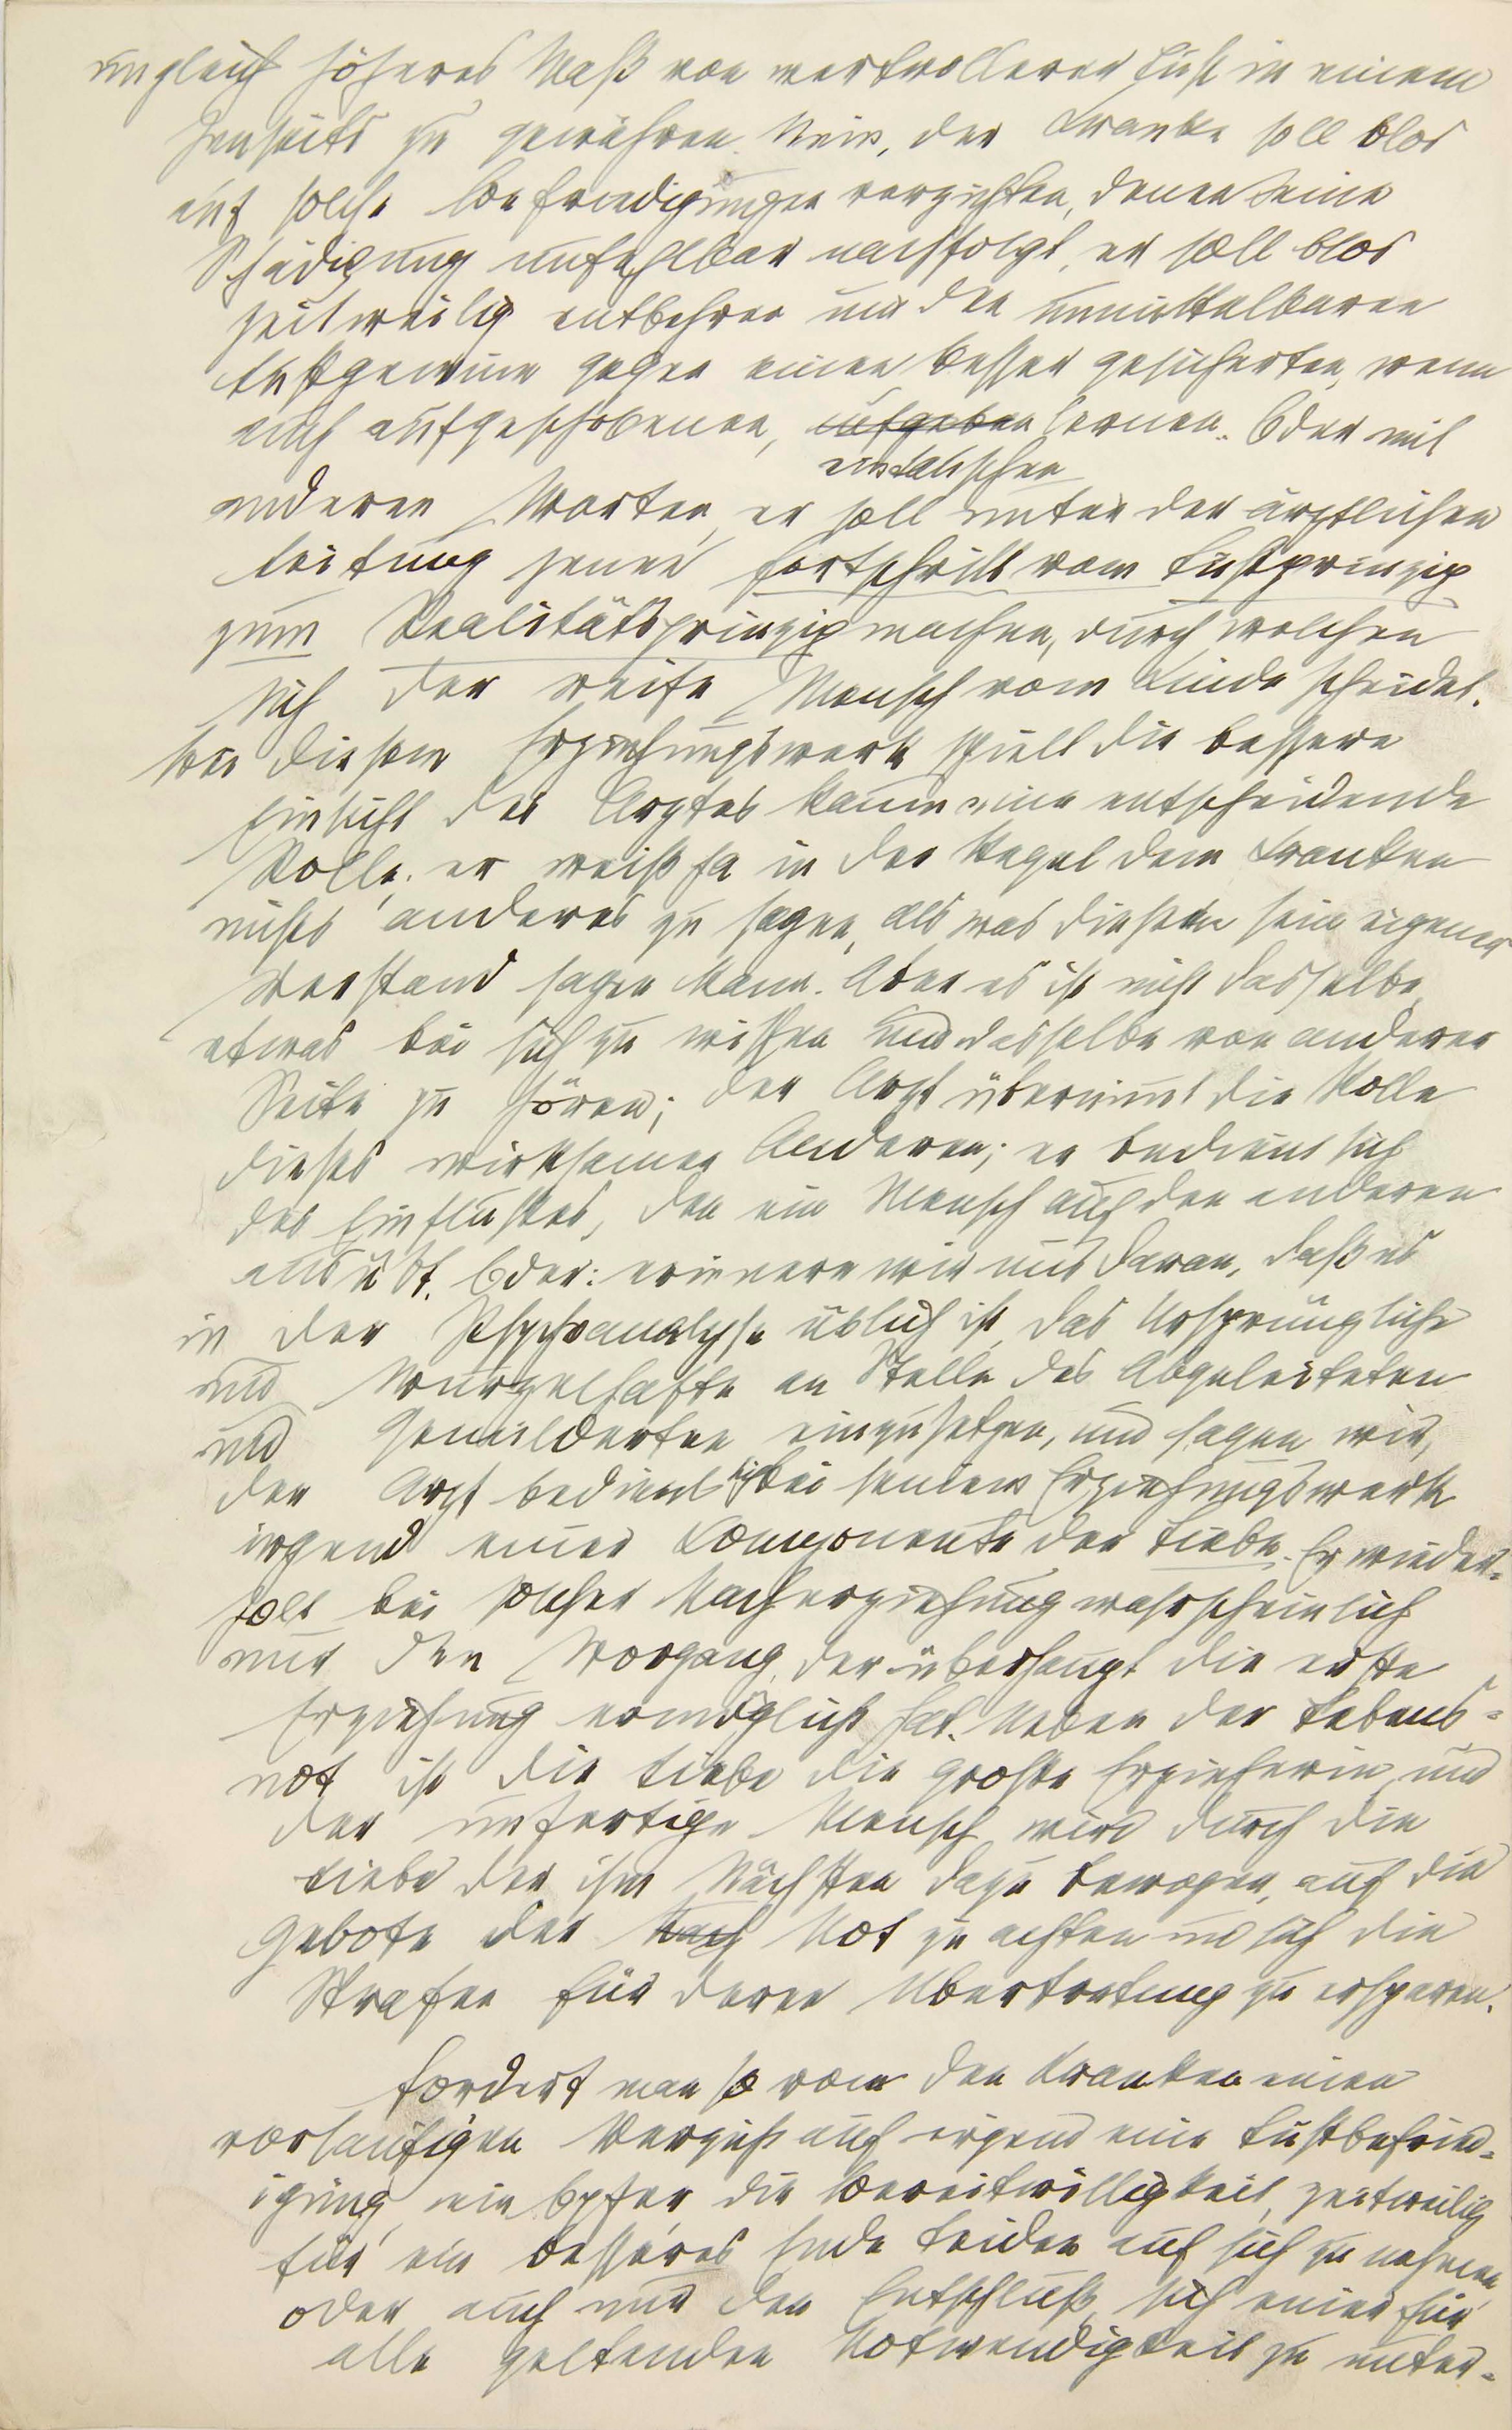 ungleich höheres Maß von wertvollerer Lust in einem
Jenseits zu gewähren. Nein, der Kranke soll blos
auf solche Befriedigungen verzichten, denen eine
Schädigung unfehlbar nachfolgt, er soll blos
zeitweilig entbehren und den unmittelbaren
Lustgewinn gegen einen besser gesicherten, wenn
auch aufgeschobenen, aufgeben lernen. Oder mit
eintauschen
anderen Worten, er soll unter der ärztlichen
Leitung jenen Fortschritt vom Lustprinzip
zum Realitätsprinzip machen, durch welchen
sich der reife Mensch vom Kinde scheidet.
Bei diesem Erziehungswerk spielt die bessere
Einsicht des Arztes kaum eine entscheidende
Rolle; er weiß ja in der Regel dem Kranken
nichts anderes zu sagen, als was diesem sein eigener
Verstand sagen kann. Aber es ist nicht dasselbe,
etwas bei sich zu wissen und dasselbe von anderer
Seite zu hören; der Arzt übernimmt die Rolle
dieses wirksamen Anderen; er bedient sich
des Einflußes, den ein Mensch auf den anderen
ausübt. Oder: erinnern wir uns daran, daß es
in der Psychoanalyse üblich ist, das Ursprüngliche
und Wurzelhafte an Stelle des Abgeleiteten
und Gemilderten einzusetzen, und sagen wir,
der Arzt bedient sich bei seinem Erziehungswerk
irgend einer Componente der Liebe. Er wieder-
holt bei solcher Nacherziehung wahrscheinlich
nur den Vorgang, der überhaupt die erste
Erziehung ermöglicht hat. Neben der Lebens-
not ist die Liebe die große Erzieherin, und
der unfertige Mensch wird durch die
Liebe der ihm Nächsten dazu bewogen, auf die
Gebote der Nach Not zu achten und sich die
Strafen für deren Übertretung zu ersparen.
Fordert man so von den Kranken einen
vorläufigen Verzicht auf irgend eine Lustbefried-
igung, ein Opfer, die Bereitwilligkeit, zeitweilig
für ein besseres Ende Leiden auf sich zu nehmen,
oder auch nur den Entschluß, sich einer für
alle geltenden Notwendigkeit zu unter-